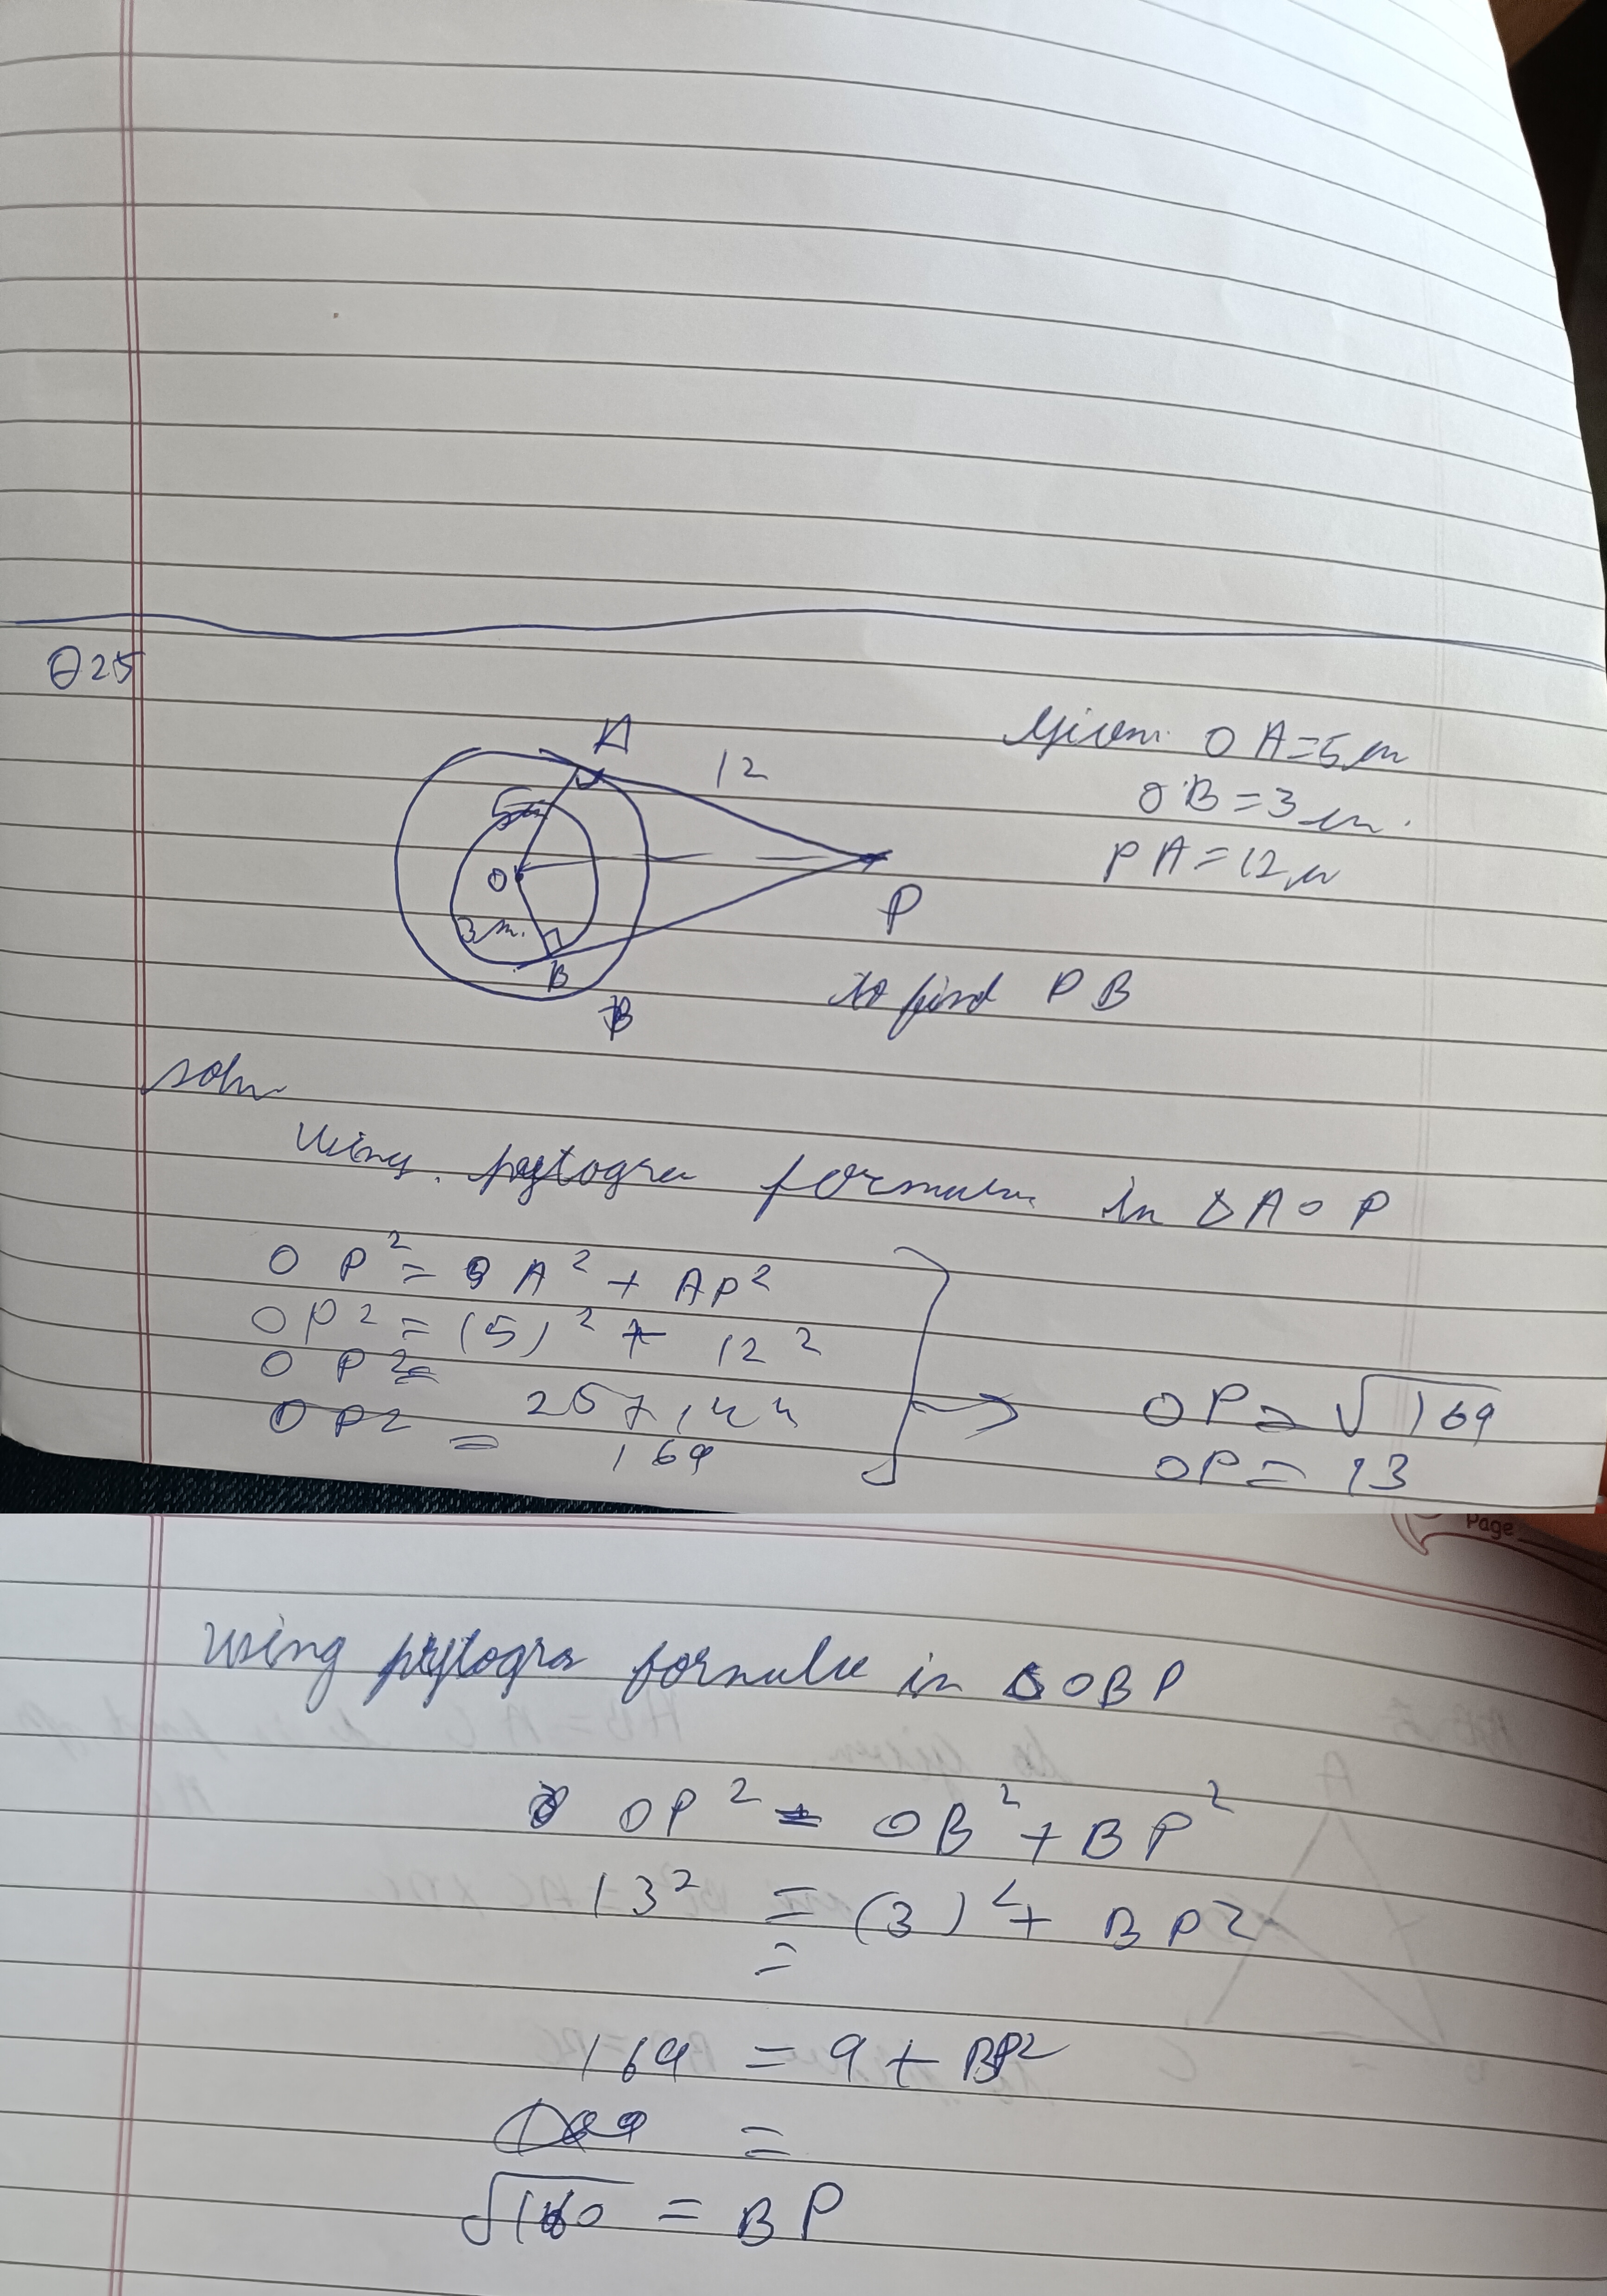 Q25
A
12
Given: OA=5cm
5cm
OB=3cm.
PA=12cm
O
P
3cm.
B
to find PB
B
soln
Using. pytogra formula in ΔAOP
OP² = OA² + AP²
OP2 = (5)² + 12²
OP2=
OP2 = 25+144
169
OP = √169
OP = 13
Page
using pytogra formula in ΔOBP
OP² = OB² + BP²
13² = (3)² + BP2
=
169 = 9 + BP2
=
√160 = BP